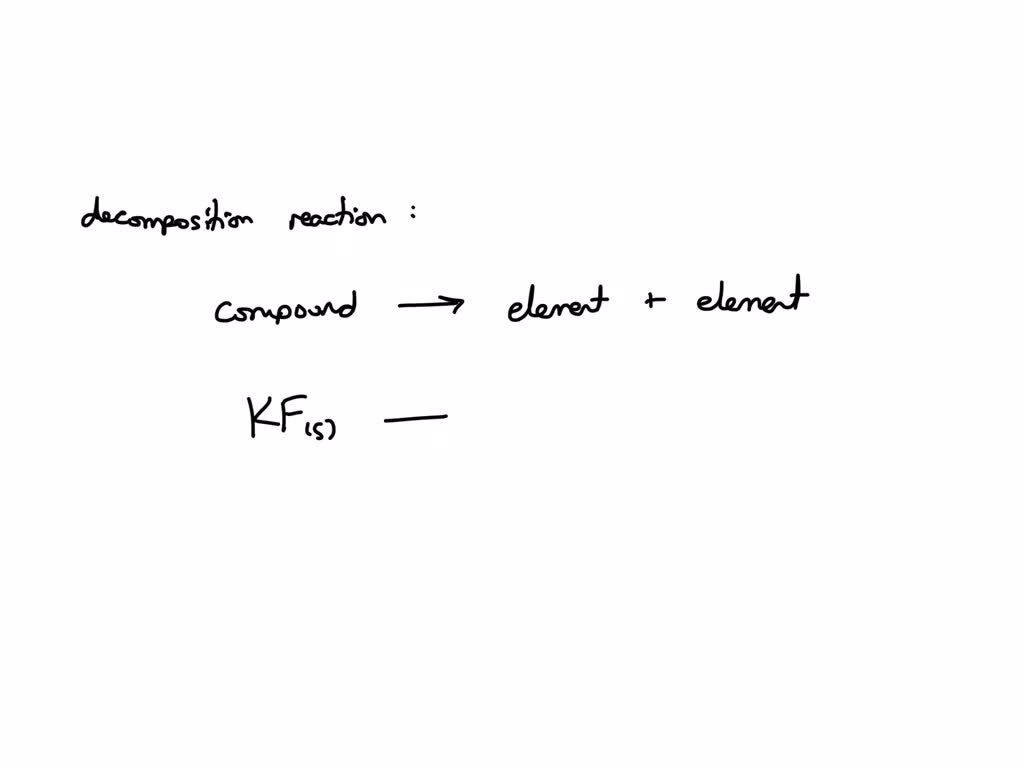 decomposition reaction :
compound → element + element
KF(s) —